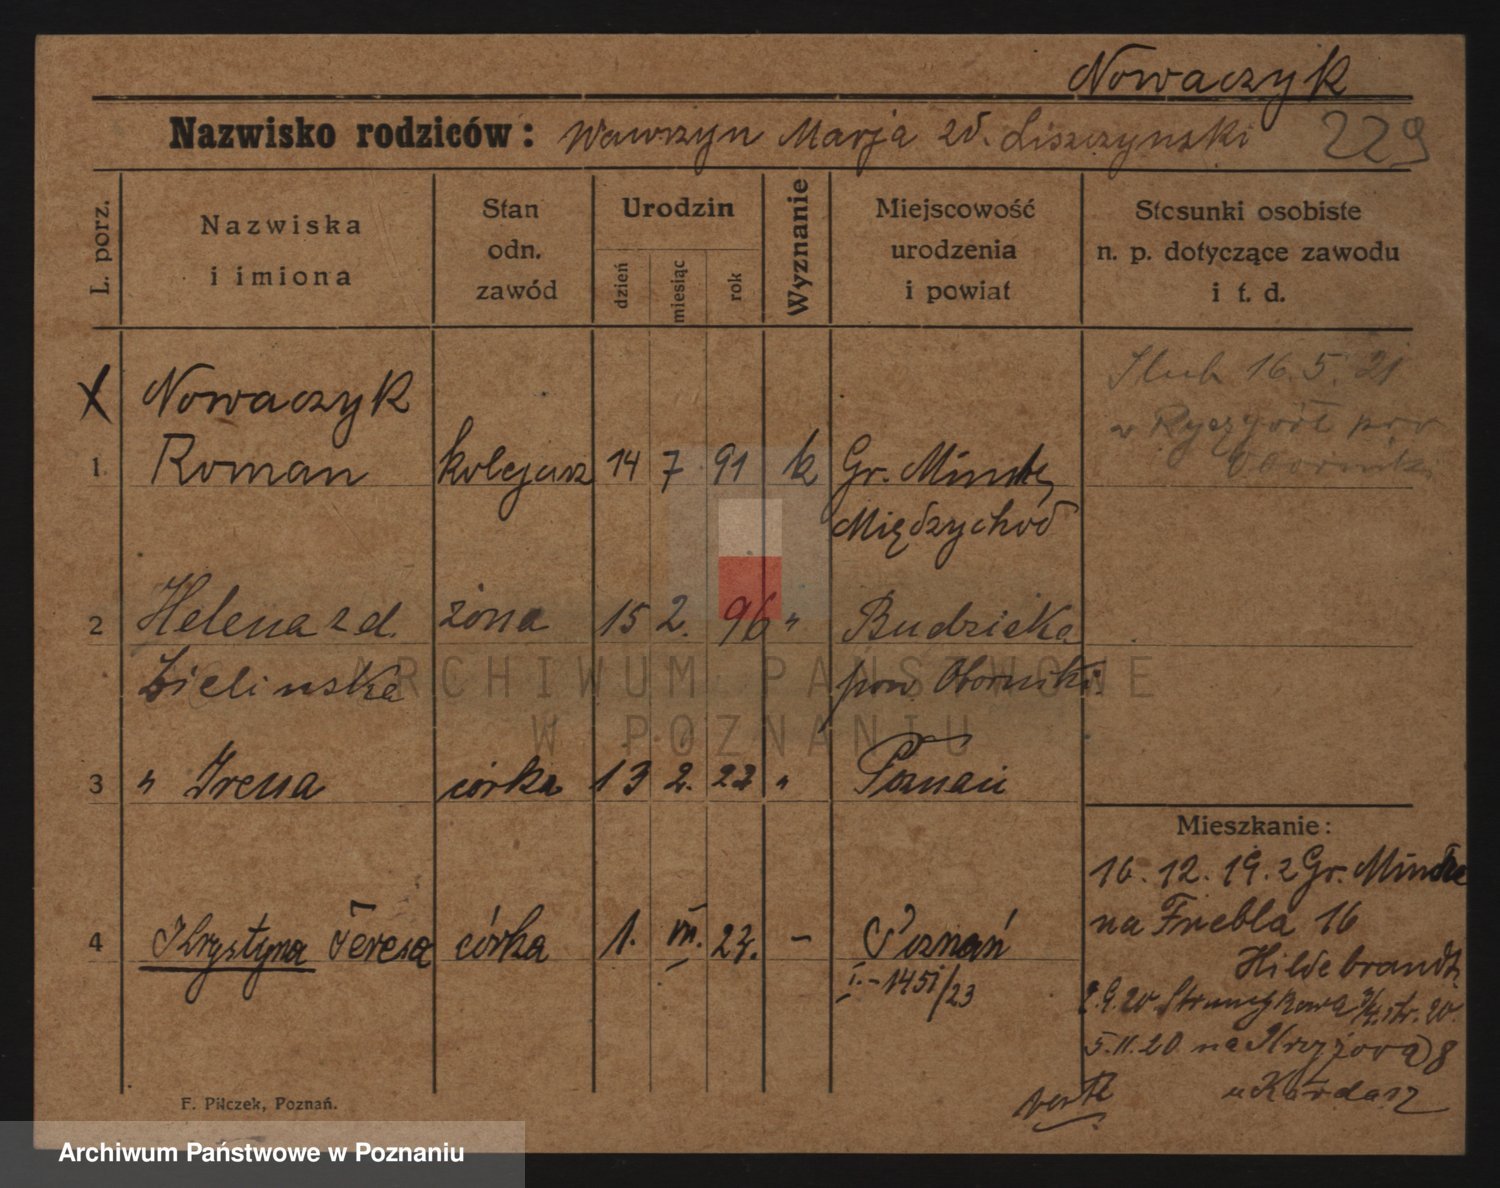 Nowaczyk
Nazwisko rodziców: Wawrzyn Marja zd. Liszczynski 229
L. porz.
Nazwiska i imiona
Stan odn. zawód
Urodzin
dzień miesiąc rok
Wyznanie
Miejscowość urodzenia i powiat
Stosunki osobiste n. p. dotyczące zawodu i t. d.
X Nowaczyk
1. Roman kolejarz 14 7 91 k Gr. Münche
Międzychod
Ślub 16.5.21
w Ryczywół pow
Obornik
2 Helena zd. żona 15 2. 96 " Budzisko
Zielinska pow. Oborniki
3 " Irena córka 13 2. 22 " Poznań
4 Krystyna Teresa córka 1. VII. 23. – Poznań
I. - 1451/23
Mieszkanie:
16. 12. 19. z Gr. Münche
na Friebla 16
Hildebrandt
2.9.20 3/4 str. 20.
5.11.20 na Krzyżową 8
u Kardasz
verte
F. Pilczek, Poznań.
ARCHIWUM PAŃSTWOWE
W POZNANIU
Archiwum Państwowe w Poznaniu